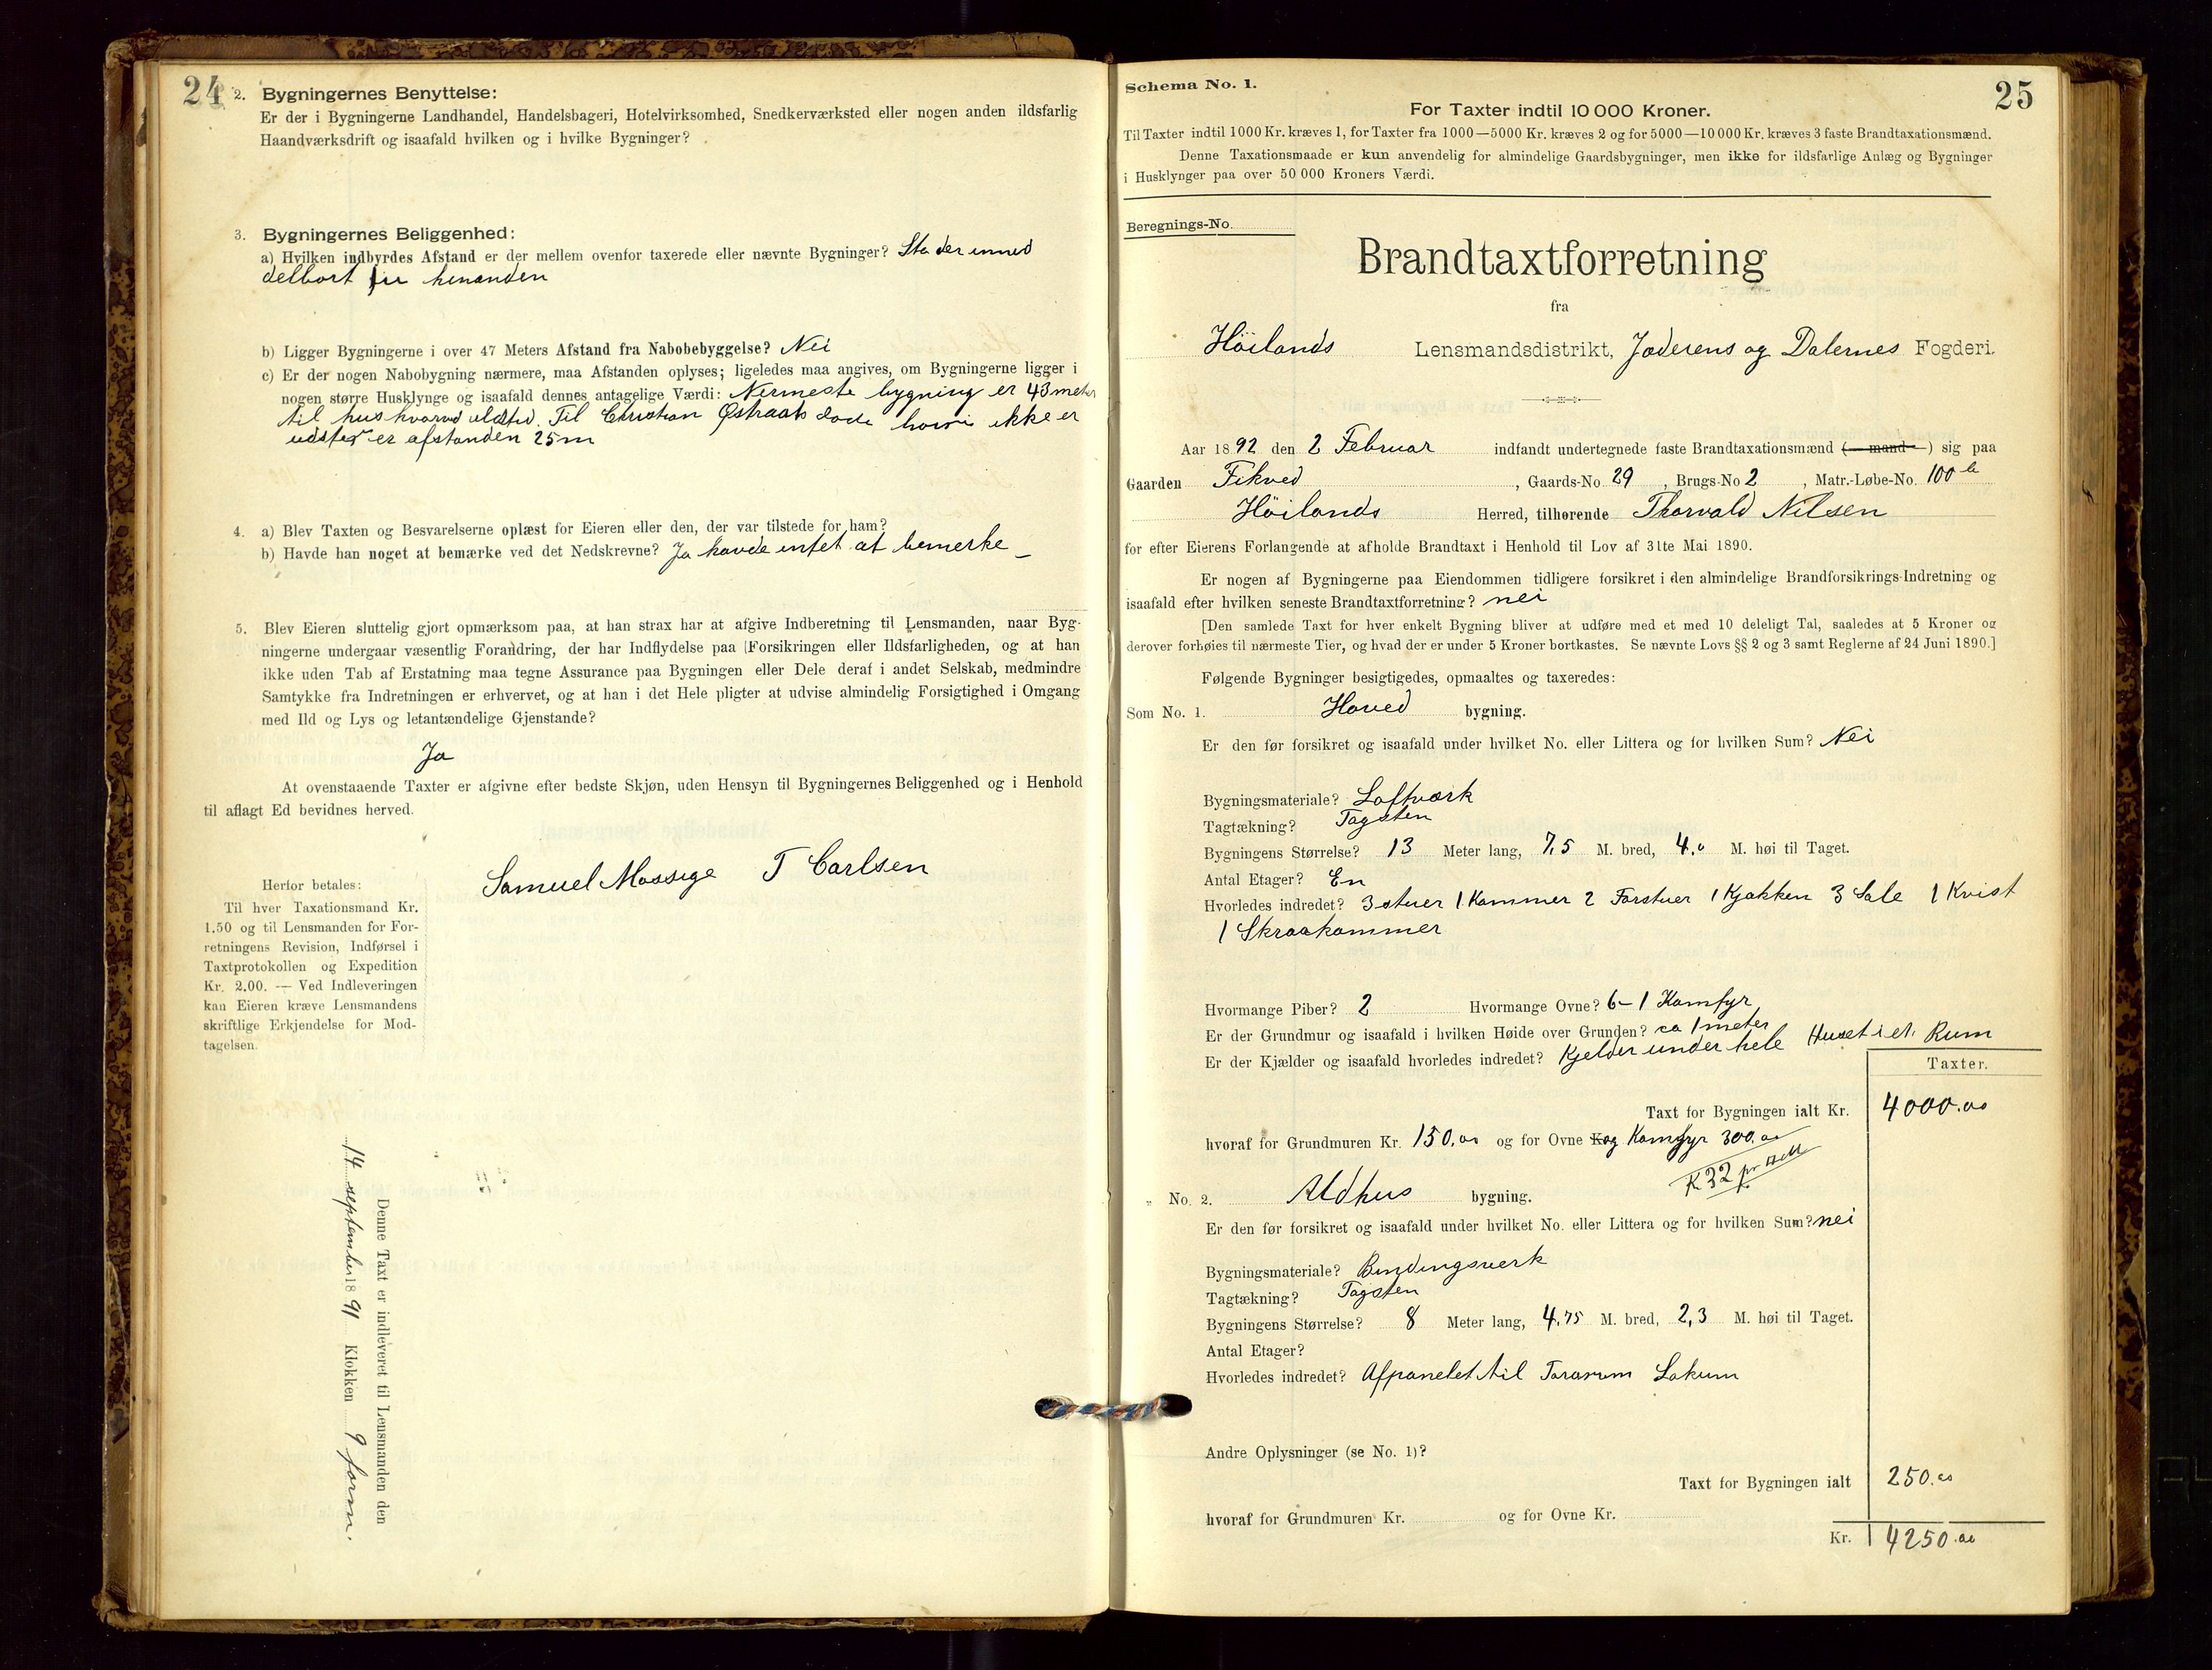 24
2. Bygningernes Benyttelse:
Er der i Bygningerne Landhandel, Handelsbageri, Hotelvirksomhed, Snedkerværksted eller nogen anden ildsfarlig
Haandværksdrift og isaafald hvilken og i hvilke Bygninger?
3. Bygningernes Beliggenhed:
a) Hvilken indbyrdes Afstand er der mellem ovenfor taxerede eller nævnte Bygninger? Sta der umid
delbart hinanden
b) Ligger Bygningerne i over 47 Meters Afstand fra Nabobebyggelse? Nei
c) Er der nogen Nabobygning nærmere, maa Afstanden oplyses; ligeledes maa angives, om Bygningerne ligger i
nogen større Husklynge og isaafald dennes antagelige Værdi: Nermeste bygning er 43 meter
til hus hvorved ildsted. Til Christian Østraats lade hvori ikke er
udsted er afstanden 25 m
4. a) Blev Taxten og Besvarelserne oplæst for Eieren eller den, der var tilstede for ham?
b) Havde han noget at bemærke ved det Nedskrevne? Ja havde intet at bemerke _
5. Blev Eieren sluttelig gjort opmærksom paa, at han strax har at afgive Indberetning til Lensmanden, naar Byg-
ningerne undergaar væsentlig Forandring, der har Indflydelse paa Forsikringen eller Ildsfarligheden, og at han
ikke uden Tab af Erstatning maa tegne Assurance paa Bygningen eller Dele deraf i andet Selskab, medmindre
Samtykke fra Indretningen er erhvervet, og at han i det Hele pligter at udvise almindelig Forsigtighed i Omgang
med Ild og Lys og letantændelige Gjenstande?
Ja
At ovenstaaende Taxter er afgivne efter bedste Skjøn, uden Hensyn til Bygningernes Beliggenhed og i Henhold
til aflagt Ed bevidnes herved.
Samuel Mossige T Carlsen
Herfor betales:
Til hver Taxationsmand Kr.
1.50 og til Lensmanden for For-
retningens Revision, Indførsel i
Taxtprotokollen og Expedition
Kr. 2.00. — Ved Indleveringen
kan Eieren kræve Lensmandens
skriftlige Erkjendelse for Mod-
tagelsen.
Denne Taxt er indleveret til Lensmanden den
14 september 1891 Klokken 9 form.
Schema No. 1.
25
For Taxter indtil 10 000 Kroner.
Til Taxter indtil 1000 Kr. kræves 1, for Taxter fra 1000—5000 Kr. kræves 2 og for 5000—10 000 Kr. kræves 3 faste Brandtaxationsmænd.
Denne Taxationsmaade er kun anvendelig for almindelige Gaardsbygninger, men ikke for ildsfarlige Anlæg og Bygninger
i Husklynger paa over 50 000 Kroners Værdi.
Beregnings-No.
Brandtaxtforretning
fra
Höilands Lensmandsdistrikt, Jæderens og Dalernes Fogderi.
Aar 1892 den 2 Februar indfandt undertegnede faste Brandtaxationsmænd (— mand —) sig paa
Gaarden Fikved, Gaards-No. 29, Brugs-No 2, Matr.-Løbe-No. 100 b
Höilands Herred, tilhørende Thorvald Nilsen
for efter Eierens Forlangende at afholde Brandtaxt i Henhold til Lov af 31te Mai 1890.
Er nogen af Bygningerne paa Eiendommen tidligere forsikret i den almindelige Brandforsikrings-Indretning og
isaafald efter hvilken seneste Brandtaxtforretning? nei
[Den samlede Taxt for hver enkelt Bygning bliver at udføre med et med 10 deleligt Tal, saaledes at 5 Kroner og
derover forhøies til nærmeste Tier, og hvad der er under 5 Kroner bortkastes. Se nævnte Lovs §§ 2 og 3 samt Reglerne af 24 Juni 1890.]
Følgende Bygninger besigtigedes, opmaaltes og taxeredes:
Som No. 1. Hoved bygning.
Er den før forsikret og isaafald under hvilket No. eller Littera og for hvilken Sum? Nei
Bygningsmateriale? Loftværk
Tagtækning? Tagsten
Bygningens Størrelse? 13 Meter lang, 7,5 M. bred, 4.0 M. høi til Taget.
Antal Etager? En
Hvorledes indredet? 3 stuer 1 Kammer 2 Forstuer 1 Kjøkken 3 Sale 1 Kvist
1 Skraakammer
Hvormange Piber? 2 Hvormange Ovne? 6 - 1 Komfyr
Er der Grundmur og isaafald i hvilken Høide over Grunden? ca 1 meter
Er der Kjælder og isaafald hvorledes indredet? Kjelder under hele Huset i et Rum
Taxter.
Taxt for Bygningen ialt Kr. 4000.00
hvoraf for Grundmuren Kr. 150.00 og for Ovne Kog Komfyr 300.00
K 32 pr
" No. 2. Ildhus bygning.
Er den før forsikret og isaafald under hvilket No. eller Littera og for hvilken Sum? nei
Bygningsmateriale? Bindingsverk
Tagtækning? Tagsten
Bygningens Størrelse? 8 Meter lang, 4,75 M. bred, 2,3 M. høi til Taget.
Antal Etager?
Hvorledes indredet? Afpanelet til Torvrum Lokum
Andre Oplysninger (se No. 1)?
Taxt for Bygningen ialt 250.00
hvoraf for Grundmuren Kr. og for Ovne Kr.
Kr. 4250.00